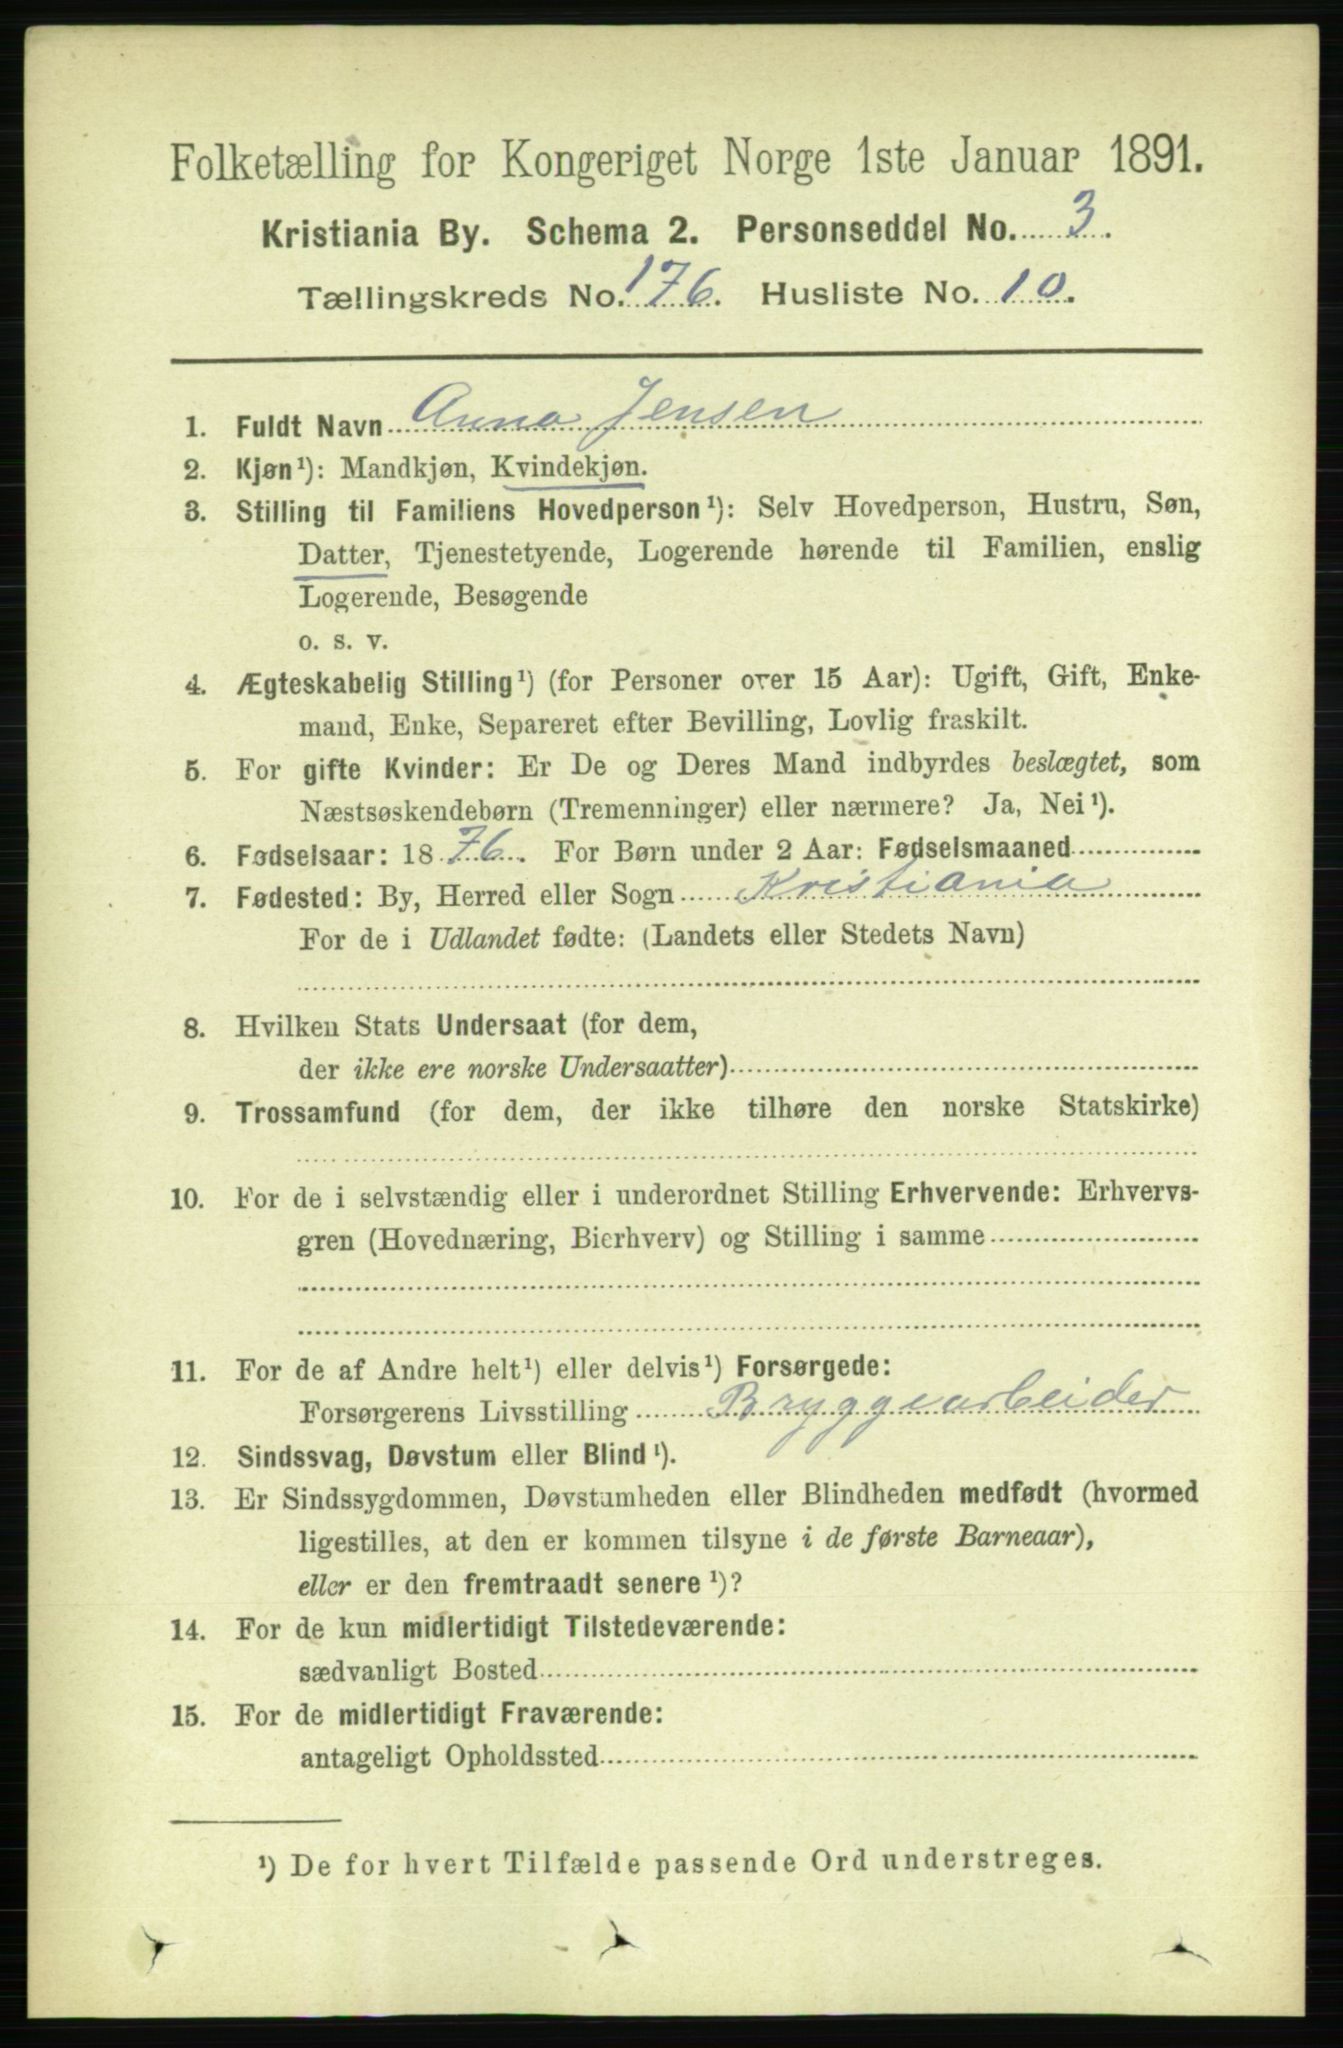 Folketælling for Kongeriget Norge 1ste Januar 1891.
Kristiania By. Schema 2. Personseddel No. 3.
Tællingskreds No. 176. Husliste No. 10.
1. Fuldt Navn Anna Jensen
2. Kjøn¹): Mandkjøn, Kvindekjøn.
3. Stilling til Familiens Hovedperson¹): Selv Hovedperson, Hustru, Søn,
Datter, Tjenestetyende, Logerende hørende til Familien, enslig
Logerende, Besøgende
o. s. v.
4. Ægteskabelig Stilling¹) (for Personer over 15 Aar): Ugift, Gift, Enke-
mand, Enke, Separeret efter Bevilling, Lovlig fraskilt.
5. For gifte Kvinder: Er De og Deres Mand indbyrdes beslægtet, som
Næstsøskendebørn (Tremenninger) eller nærmere? Ja, Nei¹).
6. Fødselsaar: 1876. For Børn under 2 Aar: Fødselsmaaned
7. Fødested: By, Herred eller Sogn Kristiania
For de i Udlandet fødte: (Landets eller Stedets Navn)
8. Hvilken Stats Undersaat (for dem,
der ikke ere norske Undersaatter)
9. Trossamfund (for dem, der ikke tilhøre den norske Statskirke)
10. For de i selvstændig eller i underordnet Stilling Erhvervende: Erhvervs-
gren (Hovednæring, Bierhverv) og Stilling i samme
11. For de af Andre helt¹) eller delvis¹) Forsørgede:
Forsørgerens Livsstilling Bryggearbeider
12. Sindssvag, Døvstum eller Blind¹).
13. Er Sindssygdommen, Døvstumheden eller Blindheden medfødt (hvormed
ligestilles, at den er kommen tilsyne i de første Barneaar),
eller er den fremtraadt senere¹)?
14. For de kun midlertidigt Tilstedeværende:
sædvanligt Bosted
15. For de midlertidigt Fraværende:
antageligt Opholdssted
¹) De for hvert Tilfælde passende Ord understreges.